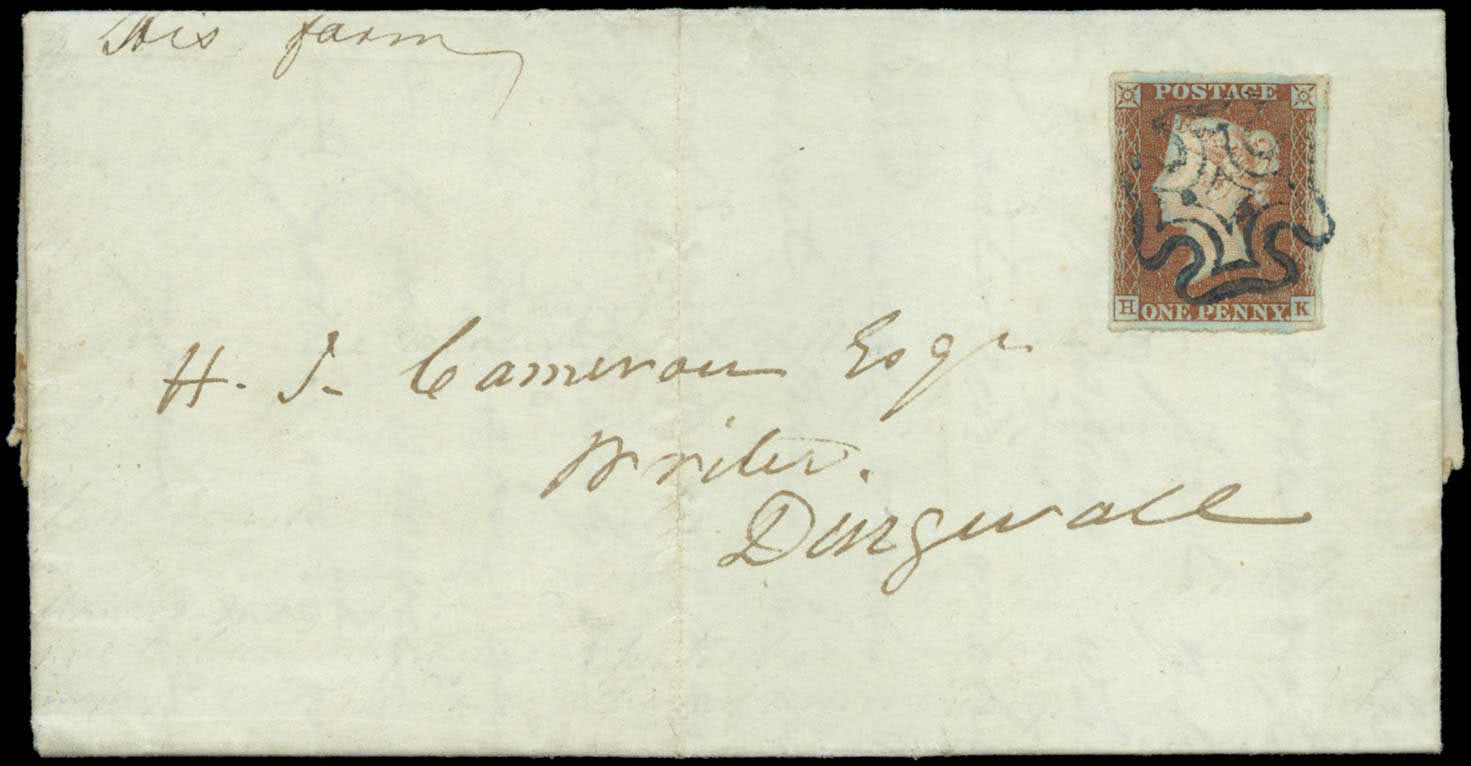 this farm
POSTAGE
H ONE PENNY. K
H. J. Cameron Esqr
Writer.
Dingwall